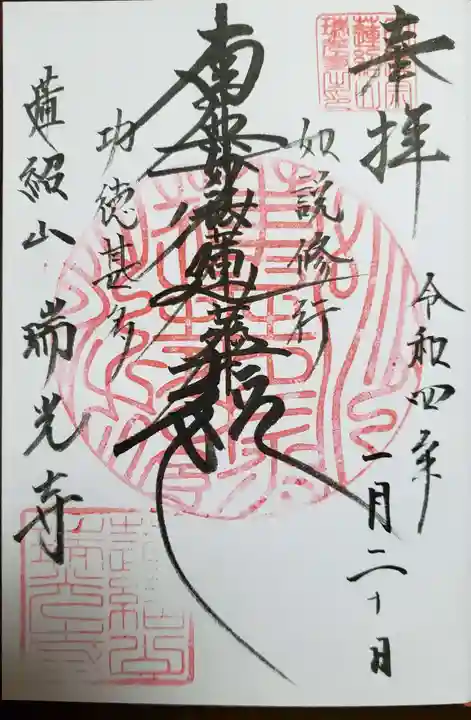 奉拝
令和四年
一月二十日
如説修行
南無妙法蓮華経
功徳甚多
蓮紹山 瑞光寺